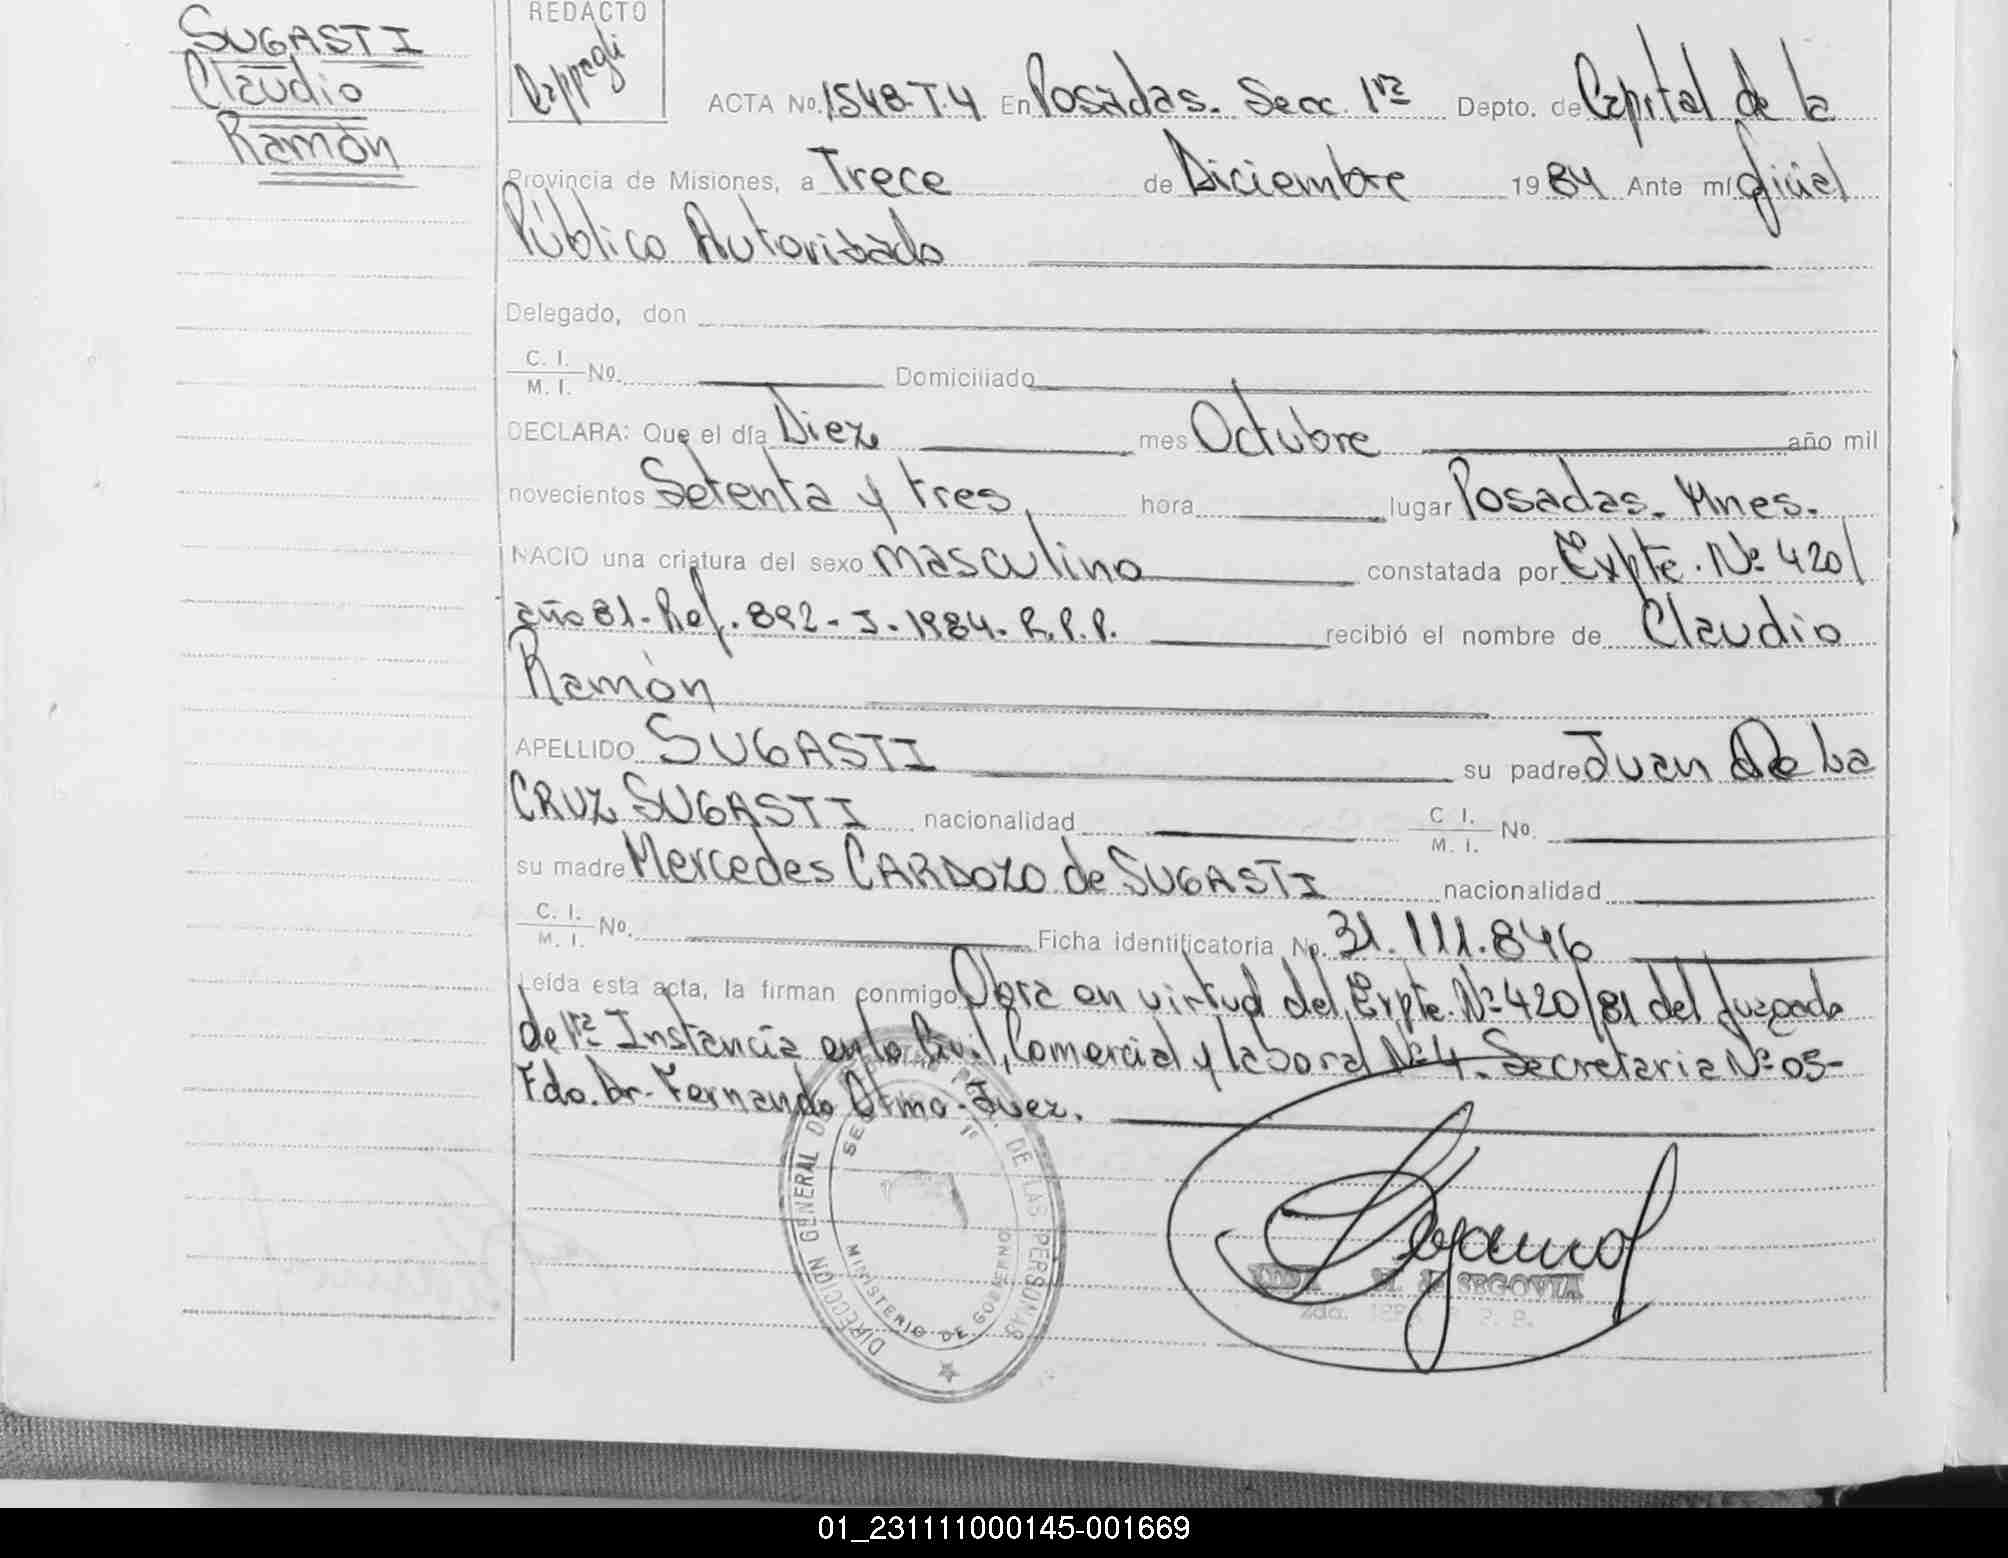 SUGASTI
Claudio
Ramón
REDACTO
ACTA No. 1548-T.4 En Posadas. Secc. 1ra Depto. de Capital de la
Provincia de Misiones, a Trece de Diciembre 1984 Ante mí oficial
Público Autorisado
Delegado, don
C. I.
M. I. No. Domiciliado
DECLARA: Que el día Diez mes Octubre año mil
novecientos Setenta y tres, hora lugar Posadas. Mnes.
NACIO una criatura del sexo masculino constatada por Expte. Nº 420/
año 81- Ref. 892- J- 1984- R.P.P. recibió el nombre de Claudio
Ramón
APELLIDO SUGASTI su padre Juan De La
CRUZ SUGASTI nacionalidad C I. M. I. No.
su madre Mercedes CARDOZO de SUGASTI nacionalidad
C. I. M. I. No. Ficha identificatoria No. 31.111.846
Leída esta acta, la firman conmigo Obra en virtud del Expte. Nº 420/81 del Juzgado
de 1ra Instancia en lo Civil, Comercial y laboral Nº 4. Secretaria Nº 05-
Fdo. Dr. Fernando Olmo- Juez.
DIRECCION GENERAL DE LAS PERSONAS
MINISTERIO DE GOBIERNO
SEGOVIA
01_231111000145-001669